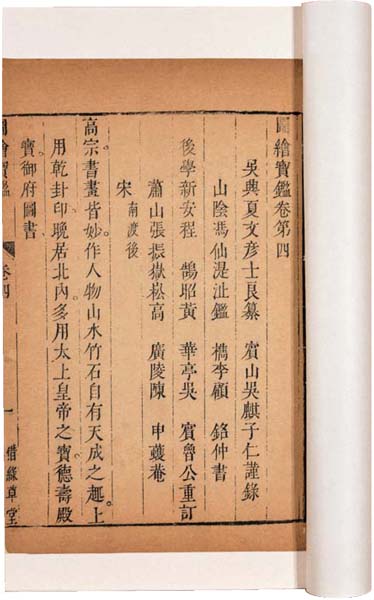 圖繪寶鑑卷第四
吳興夏文彥士良纂 寳山吳麒子仁謹錄
山陰馮仙湜沚鑑 檇李顧 銘仲書
後學新安程 鵠昭黃 華亭吳 賓魯公重訂
蕭山張振嶽崧高 廣陵陳 申蘷菴
宋南渡後
高宗書畫皆妙作人物山水竹石自有天成之趣上
用乾卦印晚居北內多用太上皇帝之寶德壽殿
寶御府圖書
圖繪寶鑑 卷四 一 借綠草堂